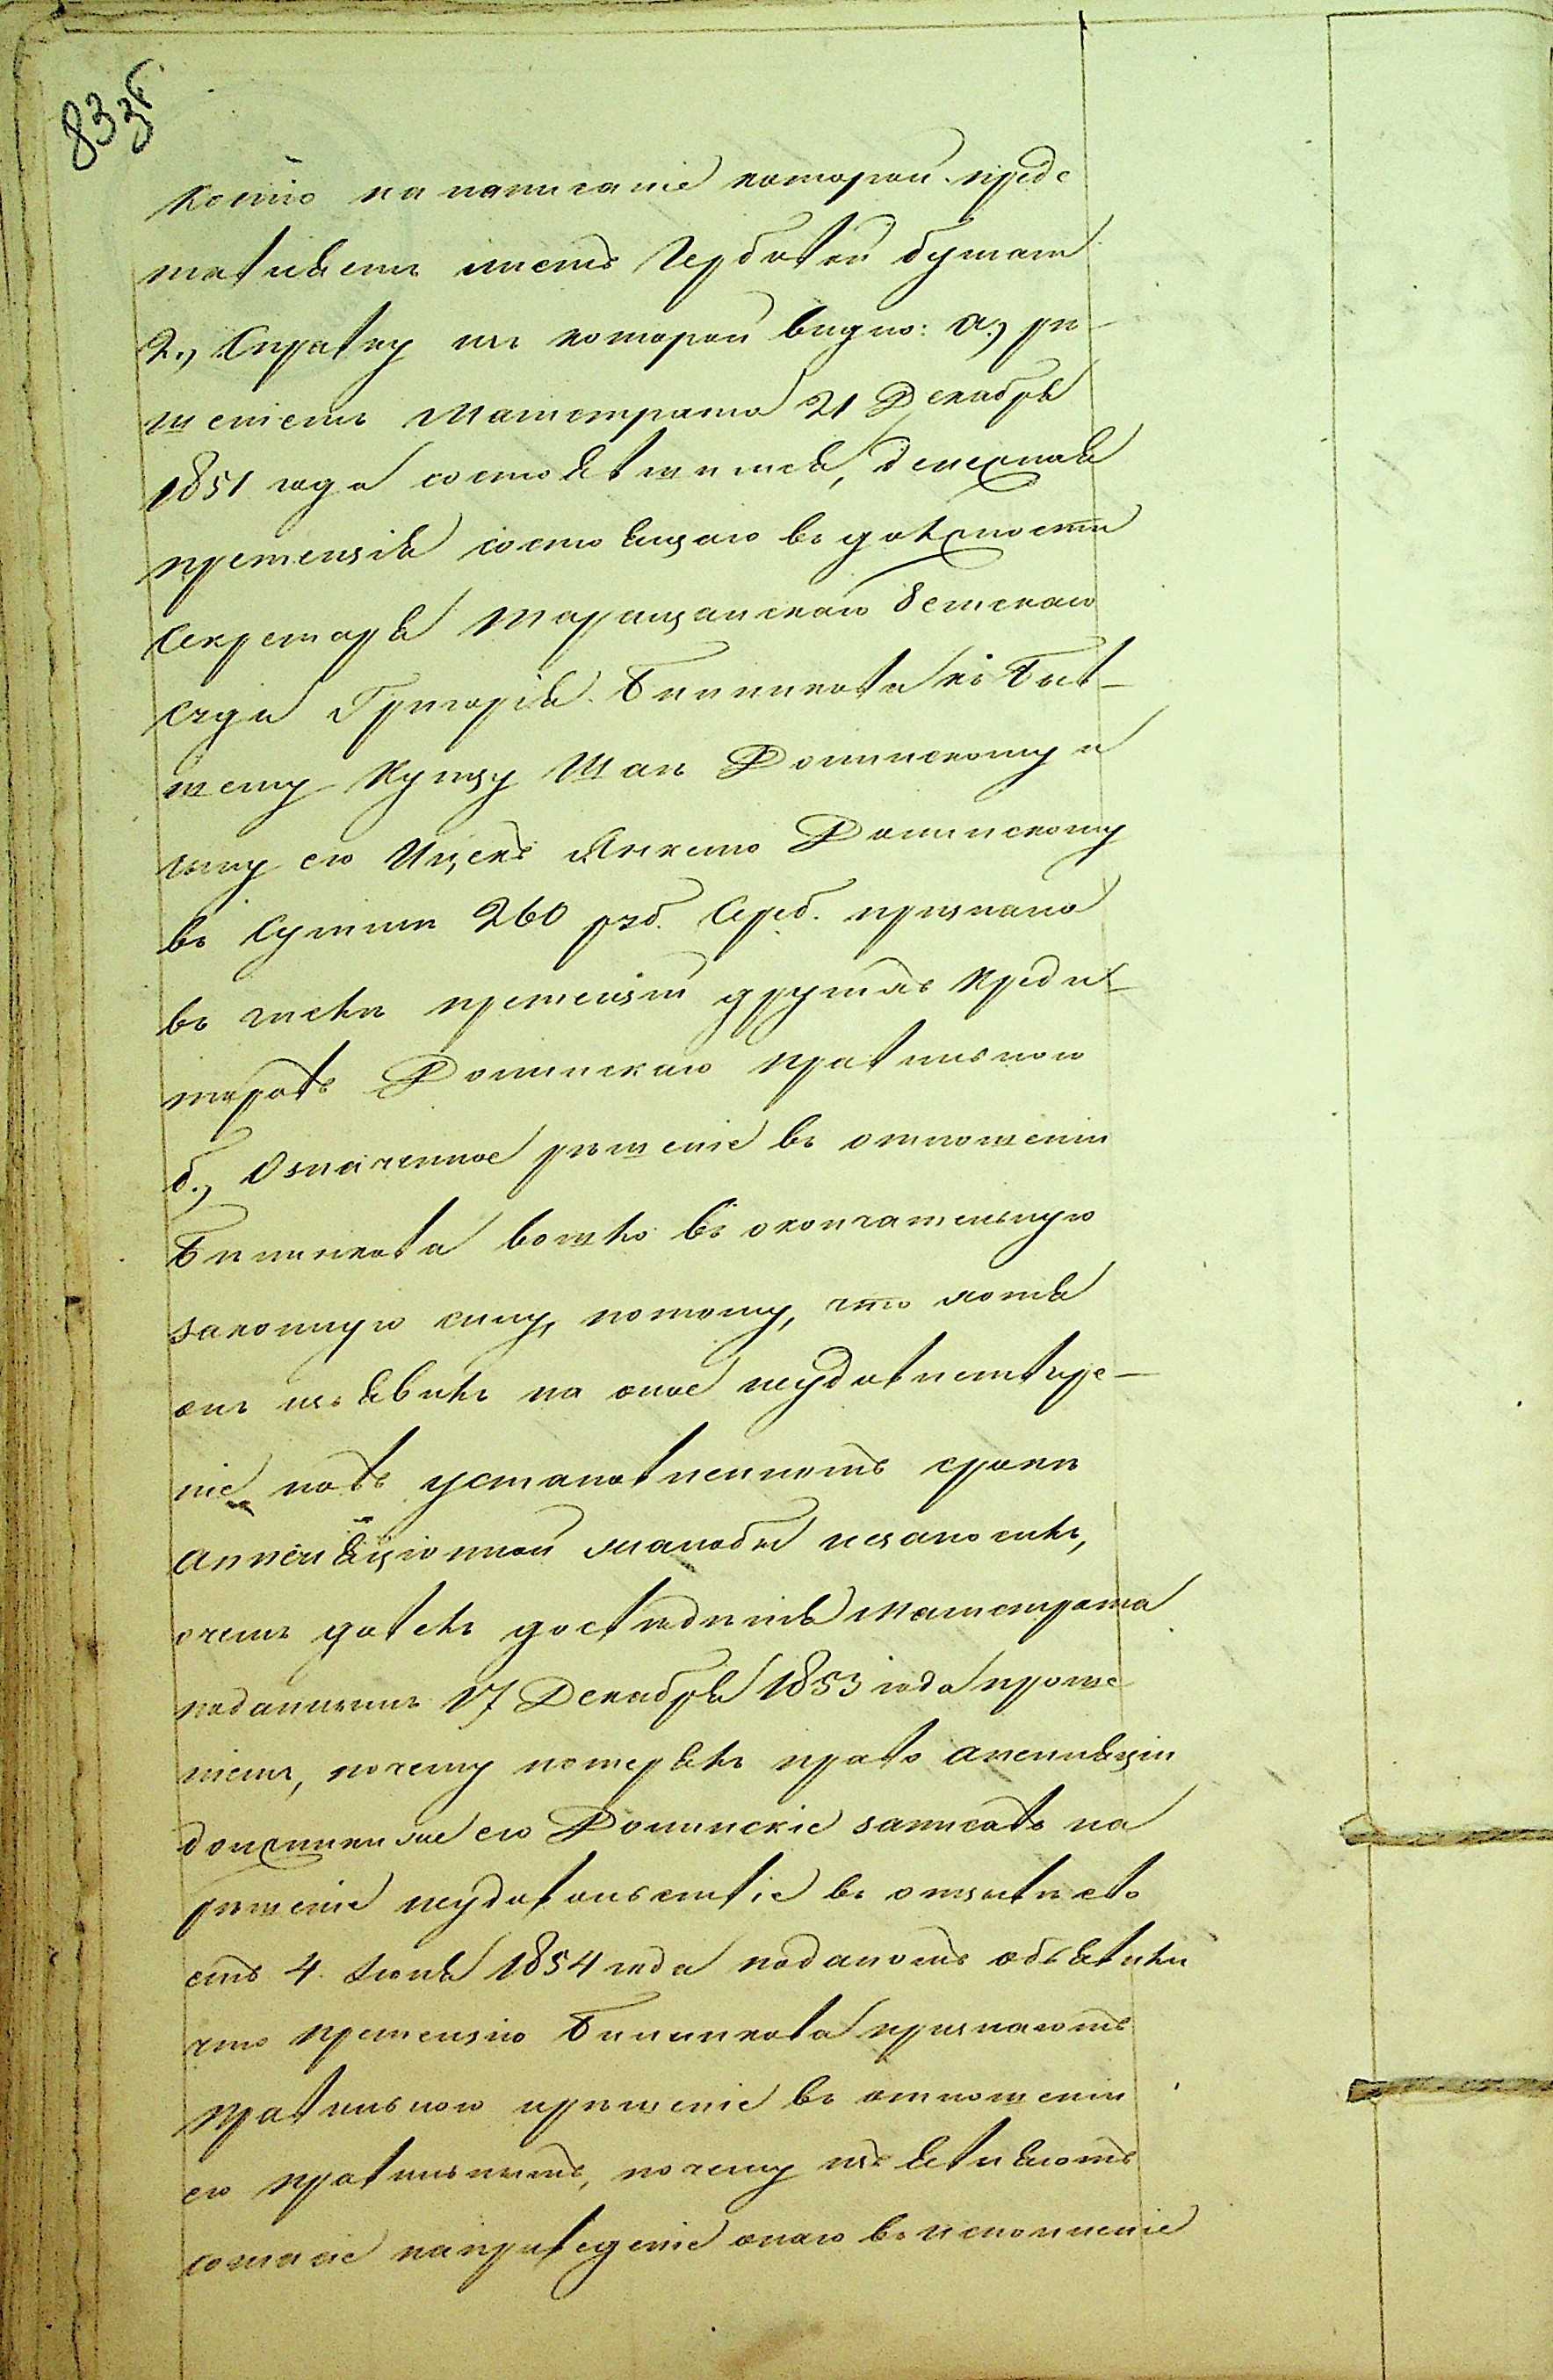 83 зв
копію на написаніе которой предс
тавляетъ листъ Гербовой бумаги
2., Справку изъ которой видно: а., рѣ-
шеніемъ Магистрата 21 Декабря
1851 года состоявшимся, денежная
претензія состоящаго въ должности
Секретаря Таращанскаго Земскаго
Суда Григорія къ Быв-
шему Купцу Шае Долинскому и
сыну его Ицекъ Янкелю Долинскому
въ Суммѣ 260 руб. Сереб. признана
въ числѣ претензій другихъ Креди-
торовъ Долинскаго правильною
б., Означенное рѣшеніе въ отношеніи
вошло въ окончательную
законную силу, потому, что хотя
онъ изъявилъ на оное неудовлетворе-
ніе новъ установленномъ срокѣ
Аппеляціонной жалобы незаносилъ,
очемъ довелъ досвѣдѣнія Магистрата
поданнымъ 17 Декабря 1853 года проше
ніемъ, почему потерялъ право апелляціи
должники же его Долинскіе записавъ на
рѣшеніе неудовольствіе въ отзывѣ съ
емъ 4 Іюня 1854 года поданомъ объявили
что претензію признаютъ
правильною ирѣшеніе въ отношеніи
его правильнымъ, почему изъявляютъ
согласіе наприведеніе онаго въ исполненіе